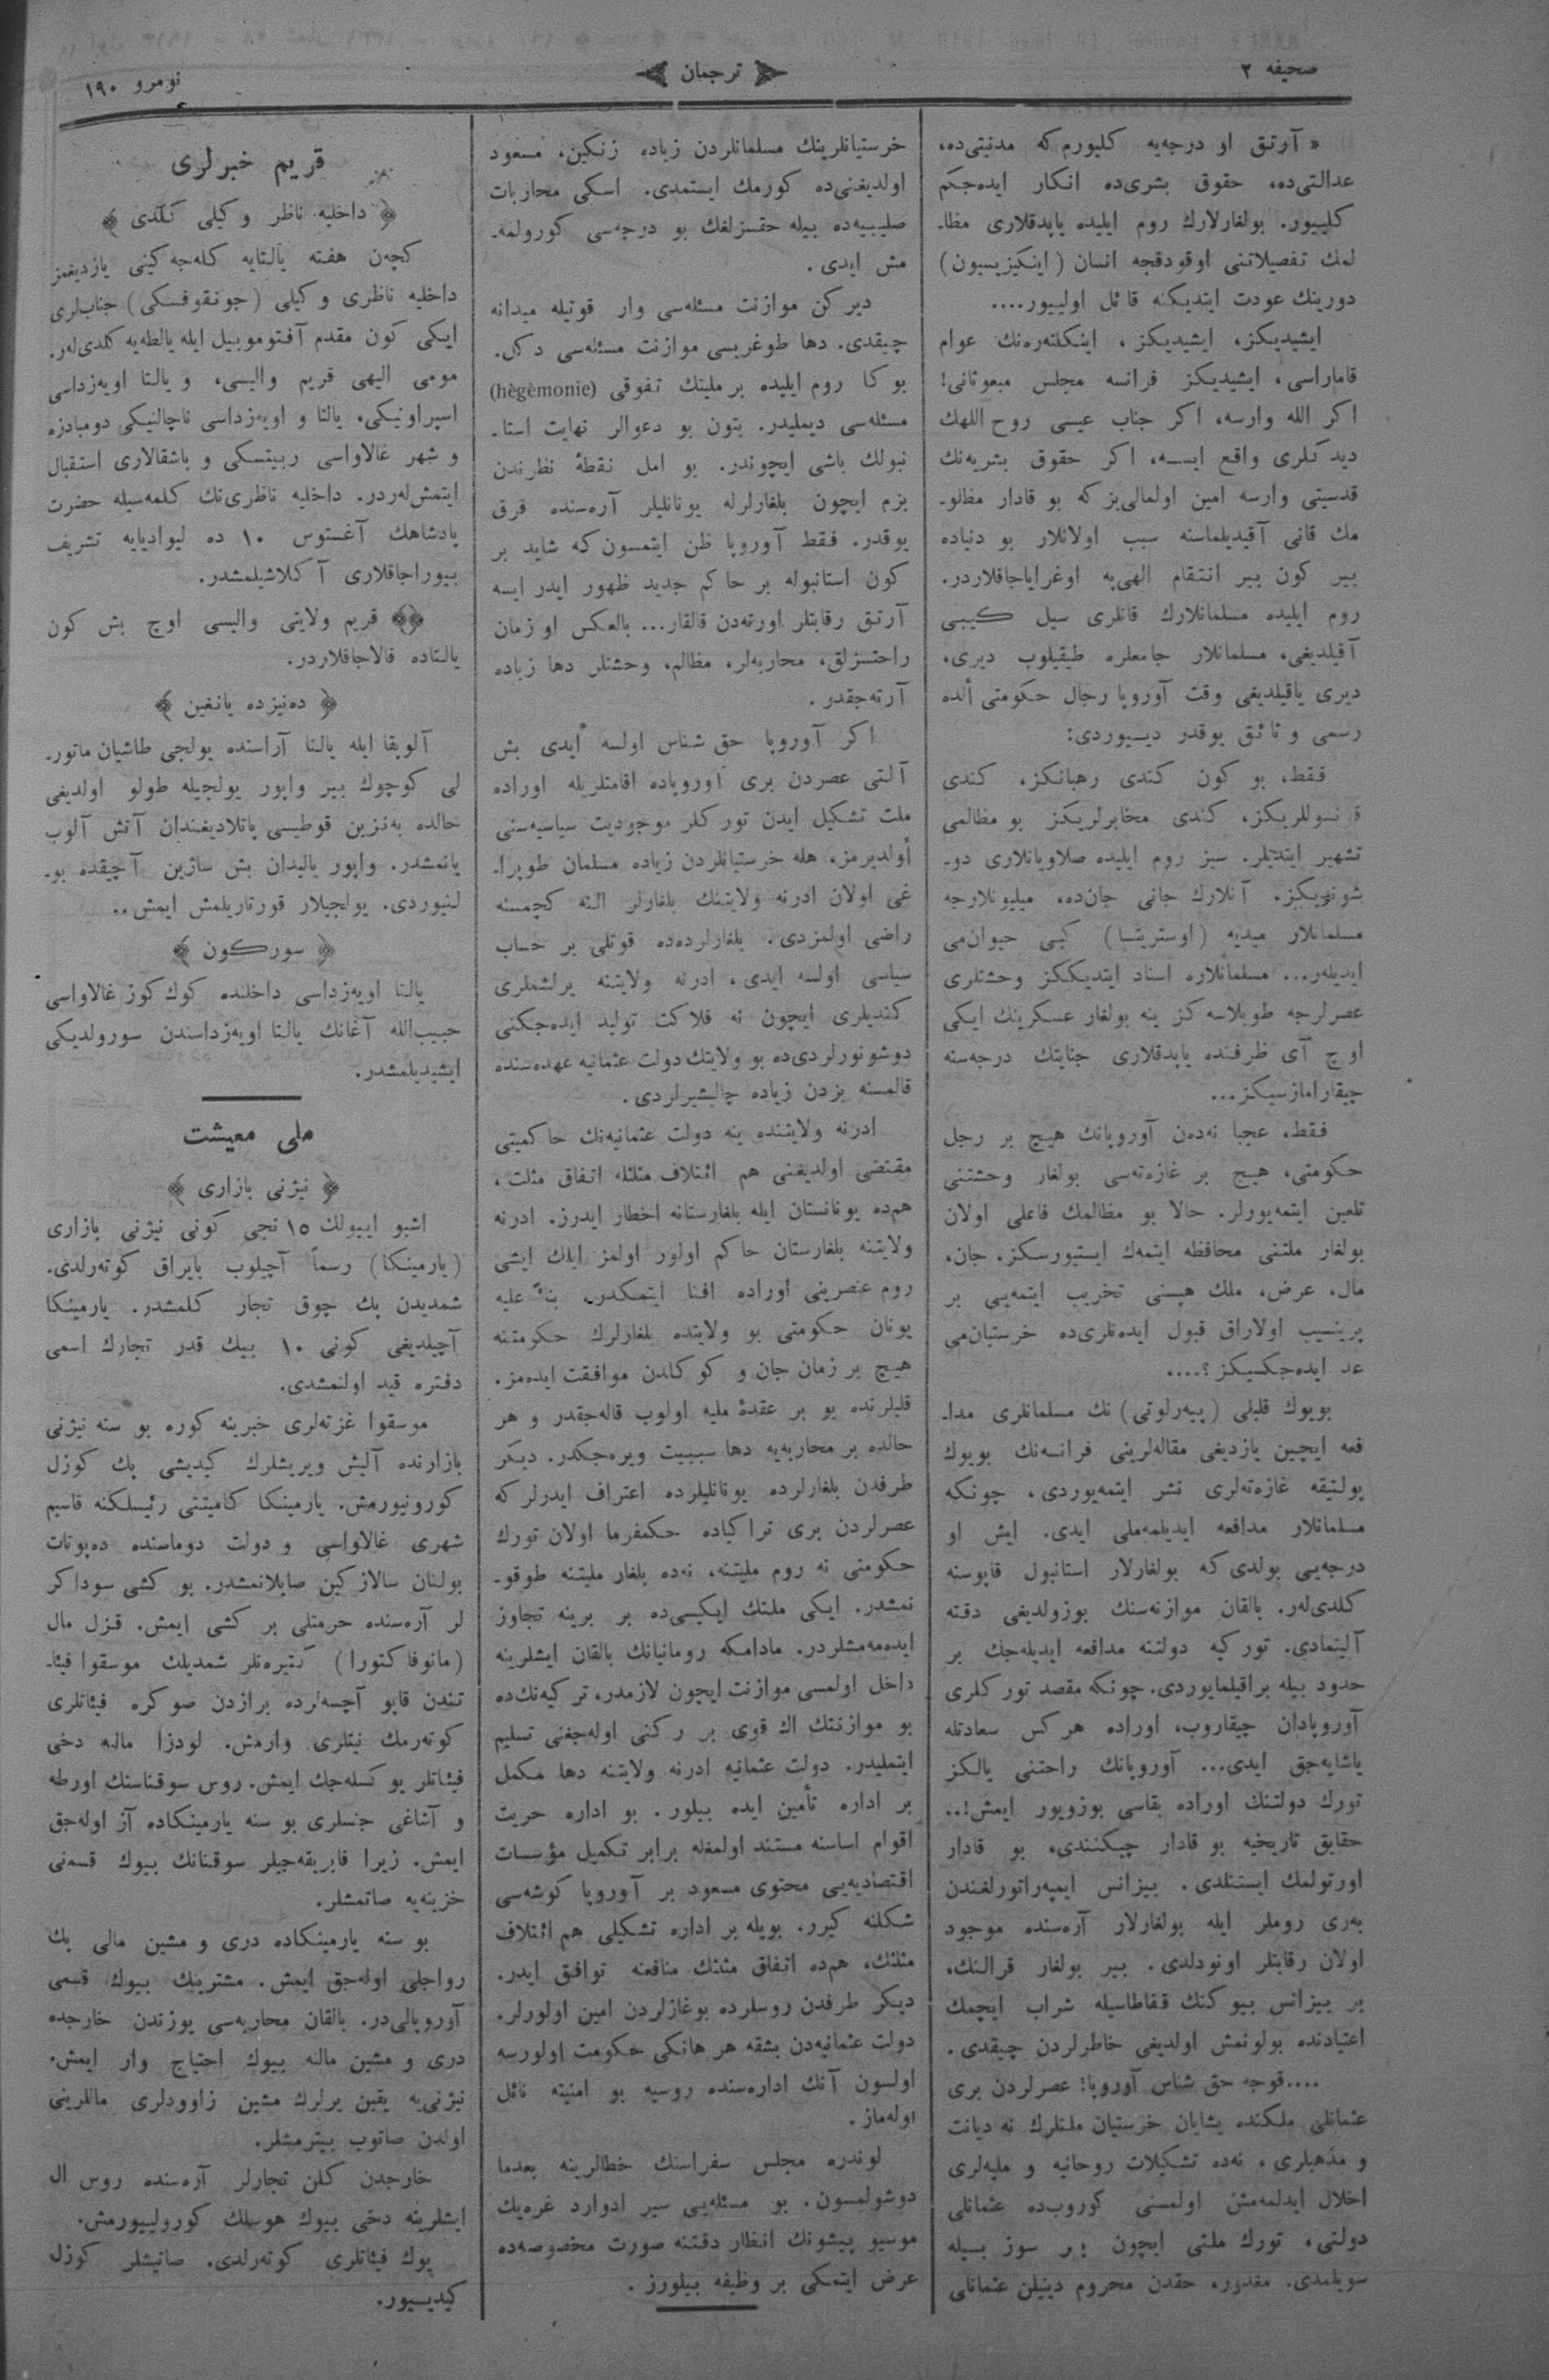 صحیفه ٢
ترجمان
نومرو ١٩٠
« آرتق او درجه‌یه کلیورم که مدنیتی‌ده،
عدالتی‌ده، حقوق بشری‌ده انکار ایده‌جکم
کلییور. بولغارلارك روم ایلیده یاپدقلاری مظا-
لمك تفصیلاتنی اوقودقجه انسان (اینکیزیسیون)
دورینك عودت ایتدیکنه قائل اولییور....
ایشیدیکز، ایشیدیکز، اینکلتره‌نك عوام
قاماراسی، ایشیدیکز فرانسه مجلس مبعوثانی!
اکر الله وارسه، اکر جناب عیسی روح اللهك
دیدکلری واقع ایسه، اکر حقوق بشریه‌نك
قدسیتی وارسه امین اولمالی‌یز که بو قادار مظلو-
مك قانی آقیدیلماسنه سبب اولانلار بو دنیاده
بیر کون بیر انتقام الهی‌یه اوغرایاجاقلاردر.
روم ایلیده مسلمانلارك قانلری سیل کیبی
آقیلدیغی، مسلمانلار جامعلره طیقیلوب دیری،
دیری یاقیلدیغی وقت آوروپا رجال حکومتی ألده
رسمی وثائق یوقدر دییوردی:
فقط، بو کون کندی رهبانکز، کندی
قونسوللریکز، کندی مخابرلریکز بو مظالمی
تشهیر ایتدیلر. سیز روم ایلیده صلاویانلاری دو-
شوندیکیز. آنلارك جانی جان‌ده، میلیونلارجه
مسلمانلار میدیه (اوستریتسا) کبی حیوان‌می
ایدیلر... مسلمانلاره اسناد ایتدیککز وحشتلری
عصرلرجه طوپلاسه‌کز ینه بولغار عسکرینك ایکی
اوچ آی ظرفنده یاپدقلاری جنایتك درجه‌سنه
چیقارامازسیکز...
فقط، عجبا نه‌دن آوروپانك هیچ بر رجل
حکومتی، هیچ بر غازه‌ته‌سی بولغار وحشتنی
تلعین ایتمه‌یورلر. حالا بو مظالمك فاعلی اولان
بولغار ملتنی محافظه ایتمه‌ك ایستیورسکز. جان،
مال، عرض، ملك هپسنی تخریب ایتمه‌یی بر
پرینسیپ اولاراق قبول ایده‌نلری‌ده خرستیان‌می
عد ایده‌جکسیکز؟....
بویوك قلبلی (پیه‌رلوتی) نك مسلمانلری مدا-
فعه ایچین یازدیغی مقاله‌لرینی فرانسه‌نك بویوك
پولتیقه غازه‌ته‌لری نشر ایتمه‌یوردی، چونکه
مسلمانلار مدافعه ایدیلمه‌ملی ایدی. ایش او
درجه‌یی بولدی که بولغارلار استانبول قاپوسنه
کلدی‌لر. بالقان موازنه‌سنك بوزولدیغی دقته
آلینمادی. تورکیه دولتنه مدافعه ایدیله‌جك بر
حدود بیله براقیلمایوردی. چونکه مقصد تورکلری
آوروپادان چیقاروب، اوراده هرکس سعادتله
یاشایه‌جق ایدی... آوروپانك راحتنی یالکز
تورك دولتنك اوراده بقاسی بوزویور ایمش!..
حقایق تاریخیه بو قادار چیکنندی، بو قادار
اورتولمك ایستنلدی. بیزانس ایمپه‌راتورلغندن
به‌ری روملر ایله بولغارلار آره‌سنده موجود
اولان رقابتلر اونودلدی. بیر بولغار قرالنك،
بر بیزانس بیوکنك قفاطاسیله شراب ایچمك
اعتیادنده بولونمش اولدیغی خاطرلردن چیقدی.
....قوجه حق شناس آوروپا! عصرلردن بری
عثمانلی ملکنده یشایان خرستیان ملتلرك نه دیانت
و مذهبلری، نه‌ده تشکیلات روحانیه و ملیه‌لری
اخلال ایدلمه‌مش اولمسنی کوروب‌ده عثمانلی
دولتی، تورك ملتی ایچون بر سوز بیله
سویلمدی. مغدور، حقدن محروم دینیلن عثمانلی
خرستیانلرینك مسلمانلردن زیاده زنکین، مسعود
اولدیغنی‌ده کورمك ایستمدی. اسکی محاربات
صلیبیه‌ده بیله حقسزلغك بو درجه‌سی کورولمه-
مش ایدی.
دیرکن موازنت مسئله‌سی وار قوتیله میدانه
چیقدی. دها طوغریسی موازنت مسئله‌سی دکل.
بوکا روم ایلیده بر ملیتك تفوقی (hègèmonie)
مسئله‌سی دیملیدر. بتون بو دعوالر نهایت استا-
نبولك باشی ایچوندر. بو امل نقطهٔ نظرندن
بزم ایچون بلغارلرله یونانلیلر آره‌سنده فرق
یوقدر. فقط آوروپا ظن ایتمسون که شاید بر
کون استانبوله بر حاکم جدید ظهور ایدر ایسه
آرتق رقابتلر اورته‌دن قالقار... بالعکس او زمان
راحتسزلق، محاربه‌لر، مظالم، وحشتلر دها زیاده
آرته‌جقدر.
اکر آوروپا حق شناس اولسه ایدی بش
آلتی عصردن بری آوروپاده اقامتلریله اوراده
ملت تشکیل ایدن تورکلر موجودیت سیاسیه‌سنی
أولدیرمز، هله خرستیانلردن زیاده مسلمان طوپرا-
غی اولان ادرنه ولایتنك بلغارلر النه کچمسنه
راضی اولمزدی. بلغارلرده‌ده قوتلی بر حساب
سیاسی اولسه ایدی، ادرنه ولایتنه یرلشملری
کندیلری ایچون نه فلاکت تولید ایده‌جکنی
دوشونورلردی‌ده بو ولایتك دولت عثمانیه عهده‌سنده
قالمسنه بزدن زیاده چالیشیرلردی.
ادرنه ولایتنده ینه دولت عثمانیه‌نك حاکمیتی
مقتضی اولدیغنی هم ائتلاف مثلثله اتفاق مثلث،
هم‌ده یونانستان ایله بلغارستانه اخطار ایدرز. ادرنه
ولایتنه بلغارستان حاکم اولور اولمز ایلك ایشی
روم عنصرینی اوراده افنا ایتمکدر. بناءً علیه
یونان حکومتی بو ولایتده بلغارلرك حکومتنه
هیچ بر زمان جان و کوکلدن موافقت ایده‌مز.
قلبلرنده بو بر عقدهٔ ملیه اولوب قاله‌جقدر و هر
حالده بر محاربه‌یه دها سببیت ویره‌جکدر. دیکر
طرفدن بلغارلرده یونانلیلرده اعتراف ایدرلر که
عصرلردن بری تراکیاده حکمفرما اولان تورك
حکومتی نه روم ملیتنه، نه‌ده بلغار ملیتنه طوقو-
نمشدر. ایکی ملتك ایکیسی‌ده بر برینه تجاوز
ایده‌مه‌مشلردر. مادامکه رومانیانك بالقان ایشلرینه
داخل اولمسی موازنت ایچون لازمدر، ترکیه‌نك‌ده
بو موازنتك اك قوی بر رکنی اوله‌جغنی تسلیم
ایتملیدر. دولت عثمانیه ادرنه ولایتنه دها مکمل
بر اداره تأمین ایده بیلور. بو اداره حریت
اقوام اساسنه مستند اولمغله برابر تکمیل مؤسسات
اقتصادیه‌یی محتوی مسعود بر آوروپا کوشه‌سی
شکلنه کیرر. بویله بر اداره تشکیلی هم ائتلاف
مثلثك، هم‌ده اتفاق مثلثك منافعنه توافق ایدر.
دیکر طرفدن روسلرده بوغازلردن امین اولورلر.
دولت عثمانیه‌دن بشقه هر هانکی حکومت اولورسه
اولسون آنك اداره‌سنده روسیه بو امنیته نائل
اوله‌ماز.
لوندره مجلس سفراسنك خطالرینه بعدما
دوشولمسون. بو مسئله‌یی سیر ادوارد غره‌یك
موسیو پیشونك انظار دقتنه صورت مخصوصه‌ده
عرض ایتمکی بر وظیفه بیلورز.
قریم خبرلری
﴿ داخلیه ناظر وکیلی کلدی ﴾
کچه‌ن هفته یالتایه کله‌جه‌کینی یازدیغمز
داخلیه ناظری وکیلی (جونقوفسکی) جناب‌لری
ایکی کون مقدم آفتوموبیل ایله یالطه‌یه کلدی‌لر.
مومی الیهی قریم والیسی، و یالتا اویه‌زداسی
اسپراونیکی، یالتا و اویه‌زداسی ناچالنیکی دومبادزه
و شهر غالاواسی ربیتسکی و باشقالاری استقبال
ایتمش‌لردر. داخلیه ناظری‌نك کلمه‌سیله حضرت
پادشاهك آغستوس ١٠ ده لیوادیایه تشریف
بیوراجاقلاری آکلاشیلمشدر.
قریم ولایتی والیسی اوچ بش کون
یالتاده قالاجاقلاردر.
﴿ ده‌نیزده یانغین ﴾
آلوپقا ایله یالتا آراسنده یولجی طاشیان ماتور-
لی کوچوك بیر واپور یولجیله طولو اولدیغی
حالده به‌نزین قوطیسی پاتلادیغندان آتش آلوب
یانمشدر. واپور یالیدان بش سازین آچیقده بو-
لنیوردی. یولجیلار قورتاریلمش ایمش..
﴿ سورکون ﴾
یالتا اویه‌زداسی داخلنده کوك کوز غالاواسی
حبیب‌الله آغانك یالتا اویه‌زداسندن سورولدیکی
ایشیدیلمشدر.
ملی معیشت
﴿ نیژنی بازاری ﴾
اشبو اییولك ١٥ نجی کونی نیژنی بازاری
(یارمینکا) رسماً آچیلوب بایراق کوته‌رلدی.
شمدیدن پك چوق تجار کلمشدر. یارمینکا
آچیلدیغی کونی ١٠ بیك قدر تجارك اسمی
دفتره قید اولنمشدی.
موسقوا غزته‌لری خبرینه کوره بو سنه نیژنی
بازارنده آلیش ویریشلرك کیدیشی پك کوزل
کورونیورمش. یارمینکا کامیتنی رئیسلکنه قاسیم
شهری غالاواسی و دولت دوماسنده ده‌پوتات
بولنان سالازکین صایلانمشدر. بو کشی سوداکر
لر آره‌سنده حرمتلی بر کشی ایمش. قزل مال
(مانوفاکتورا) کتیره‌نلر شمدیلك موسقوا فیئا-
تندن قاپو آچسه‌لرده برازدن صوکره فیئاتلری
کوته‌رمك نیتلری وارمش. لودزا مالنه دخی
فیئاتلر یوکسله‌جك ایمش. روس سوقناسنك اورطه
و آشاغی جنسلری بو سنه یارمینکاده آز اوله‌جق
ایمش. زیرا فابریقه‌جیلر سوقنانك بیوك قسمنی
خزینه‌یه صاتمشلر.
بو سنه یارمینکاده دری و مشین مالی پك
رواجلی اوله‌جق ایمش. مشترینك بیوك قسمی
آوروپالی‌در. بالقان محاربه‌سی یوزندن خارجده
دری و مشین مالنه بیوك احتیاج وار ایمش.
نیژنی‌یه یقین یرلرك مشین زاوودلری ماللرینی
اولدن صاتوب بیترمشلر.
خارجدن کلن تجارلر آره‌سنده روس ال
ایشلرینه دخی بیوك هوسلك کورولییورمش.
یوك فیئاتلری کوته‌رلدی. صاتیشلر کوزل
کیدییور.